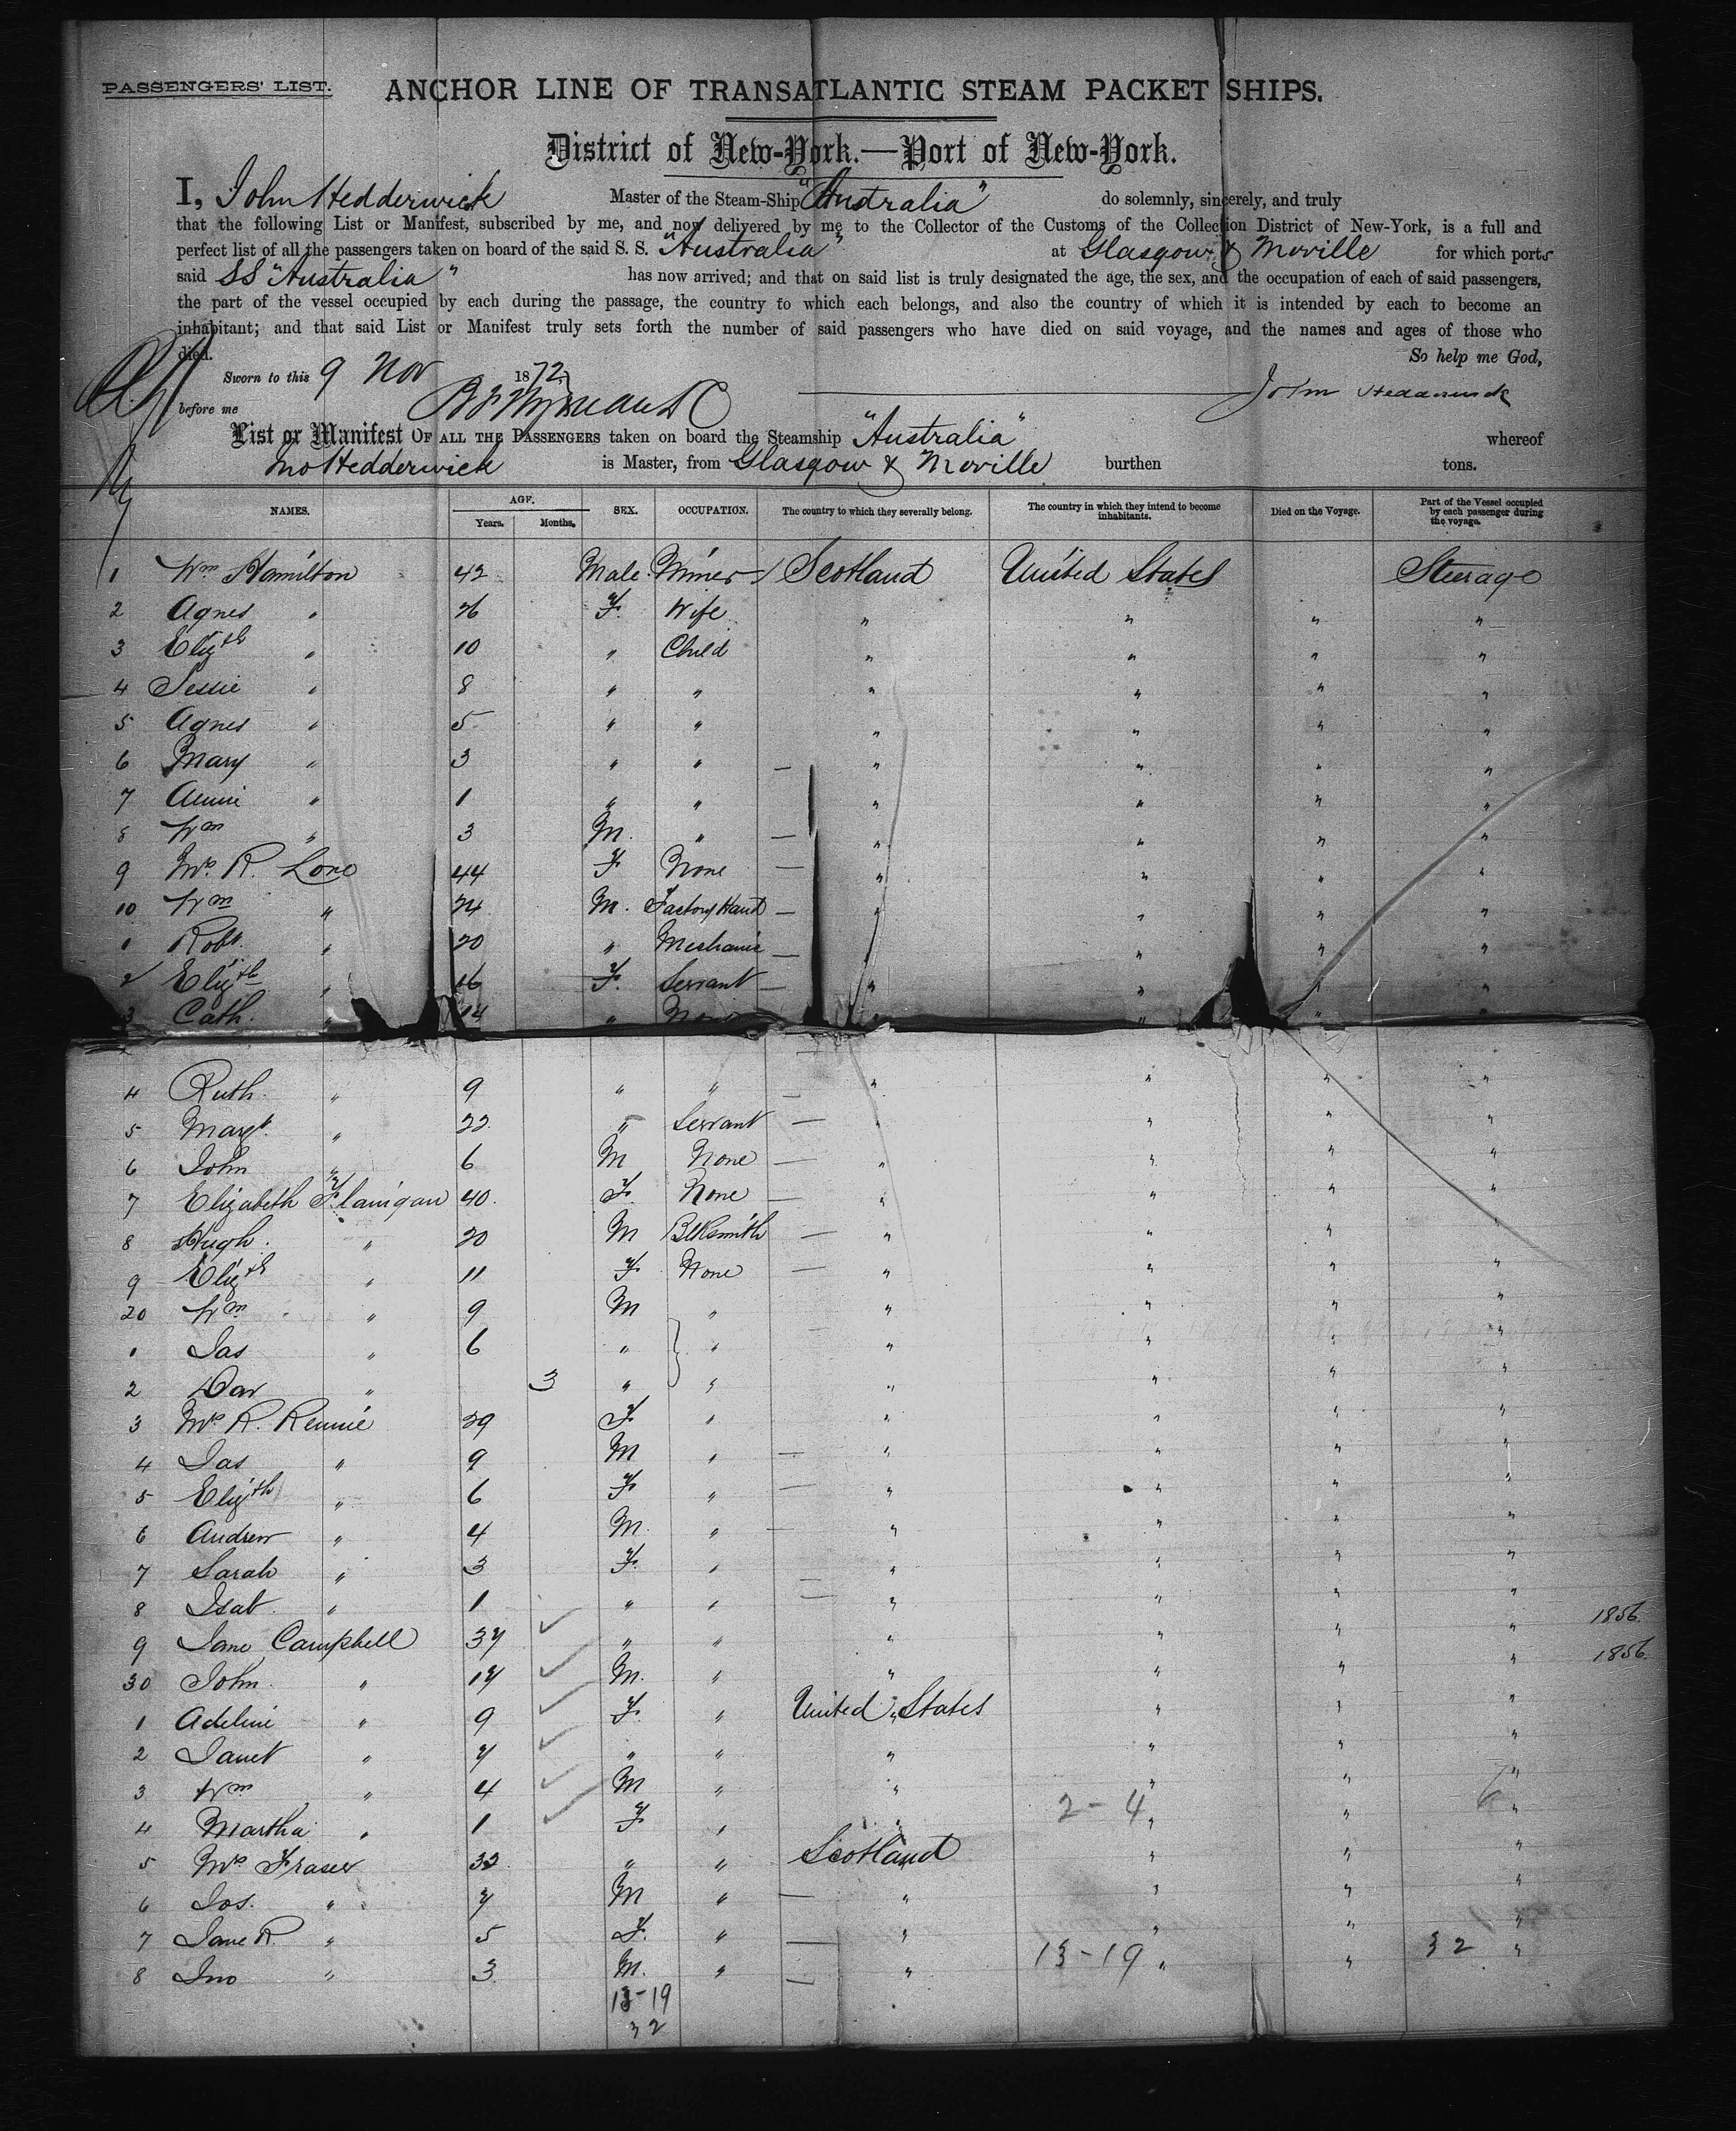 PASSENGERS' LIST. ANCHOR LINE OF TRANSATLANTIC STEAM PACKET SHIPS.
District of New-York.—Port of New-York.
I, John Hedderwick Master of the Steam-Ship "Australia" do solemnly, sincerely, and truly
that the following List or Manifest, subscribed by me, and now delivered by me to the Collector of the Customs of the Collection District of New-York, is a full and
perfect list of all the passengers taken on board of the said S. S. "Australia" at Glasgow & Moville for which ports
said SS "Australia" has now arrived; and that on said list is truly designated the age, the sex, and the occupation of each of said passengers,
the part of the vessel occupied by each during the passage, the country to which each belongs, and also the country of which it is intended by each to become an
inhabitant; and that said List or Manifest truly sets forth the number of said passengers who have died on said voyage, and the names and ages of those who
died. So help me God,
Sworn to this 9 Nov 1872
before me John Hedderwick
List or Manifest OF ALL THE PASSENGERS taken on board the Steamship "Australia" whereof
Jno Hedderwick is Master, from Glasgow & Moville burthen tons.
NAMES. AGE. Years. Months. SEX. OCCUPATION. The country to which they severally belong. The country in which they intend to become inhabitants. Died on the Voyage. Part of the Vessel occupied by each passenger during the voyage.
1 Wm Hamilton 42 Male Miner Scotland United States Steerage
2 Agnes " 26 F. Wife " " " "
3 Elizth " 10 " Child " " " "
4 Jessie " 8 " " " " " "
5 Agnes " 5 " " " " " "
6 Mary " 3 " " — " " " "
7 Annie " 1 " " " " " "
8 Wm " 3 M. " — " " " "
9 Mrs R. Love 44 F None — " " " "
10 Wm " 24 M. Factory Hand — " " " "
1 Robt. " 20 " Mechanic — " " " "
2 Elizth " 16 F. Servant — " " " "
3 Cath. " 14 " None " " "
4 Ruth. " 9 " " — " " " "
5 Margt. " 22 " Servant — " " " "
6 John " 6 M None — " " " "
7 Elizabeth Flanigan 40. F. None — " " " "
8 Hugh. " 20 M Blksmith — " " " "
9 Elizth " 11 F. None — " " " "
20 Wm " 9 M " " " " "
1 Jas " 6 " " " " " "
2 Dav " 3 " " " " " "
3 Mrs R. Rennie 29 F. " " " " "
4 Jas " 9 M " — " " " "
5 Elizth " 6 F. " — " " " "
6 Andrew " 4 M. " — " " " "
7 Sarah " 3 F. " " " " "
8 Isab. " 1 " " — " " " "
9 Jane Campbell 37 " " " " " " 1856
30 John " 17 M. " " " " " 1856
1 Adeline " 9 F. " United States " " "
2 Janet " 7 " " " " " "
3 Wm " 4 M " " " " "
4 Martha " 1 F " " 2-4 " " 6 "
5 Mrs Fraser 32 " " Scotland " " "
6 Jos. " 7 M " — " " " "
7 Jane R. " 5 F. " — " " " "
8 Jno " 3 M. " — " 13-19 " " 32 "
13-19
32